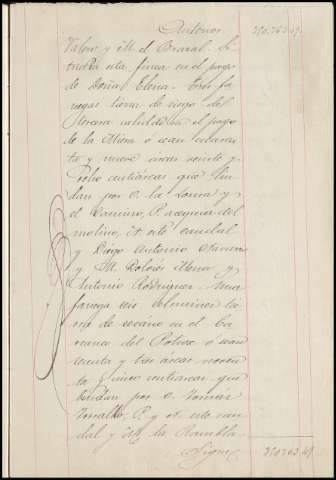 Antonio 370.763.49.
Valero y M. el Brazal. Si-
tuada esta finca en el pago
de Doña Elena. Tres fa
negas tierra de riego del
tercera calidad en el pago
de la Mora ó sean cuaren
ta y nueve áreas veinte y
ocho centiáreas que lin
dan por S. la Loma y
el Camino, P. acequia del
molino, N. este caudal
y Diego Antonio Navarro
y M. Dolores Mena y
Antonio Rodriguez. Una
fanega seis celemines tie
rra de secano en el Ba
rranco del Pobre ó sean
cuenta y tres áreas noven
ta y cinco centiáreas que
lindan por S. Tomás
Torralbo, P. y N. este cau
dal y M. la Rambla.
Sigue 370763.49